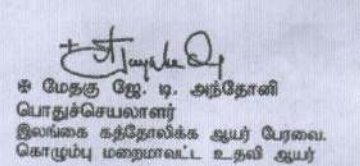 ✠ மேதகு ஜே. டி. அந்தோனி
பொதுச்செயலாளர்
இலங்கை கத்தோலிக்க ஆயர் பேரவை.
கொழும்பு மறைமாவட்ட உதவி ஆயர்